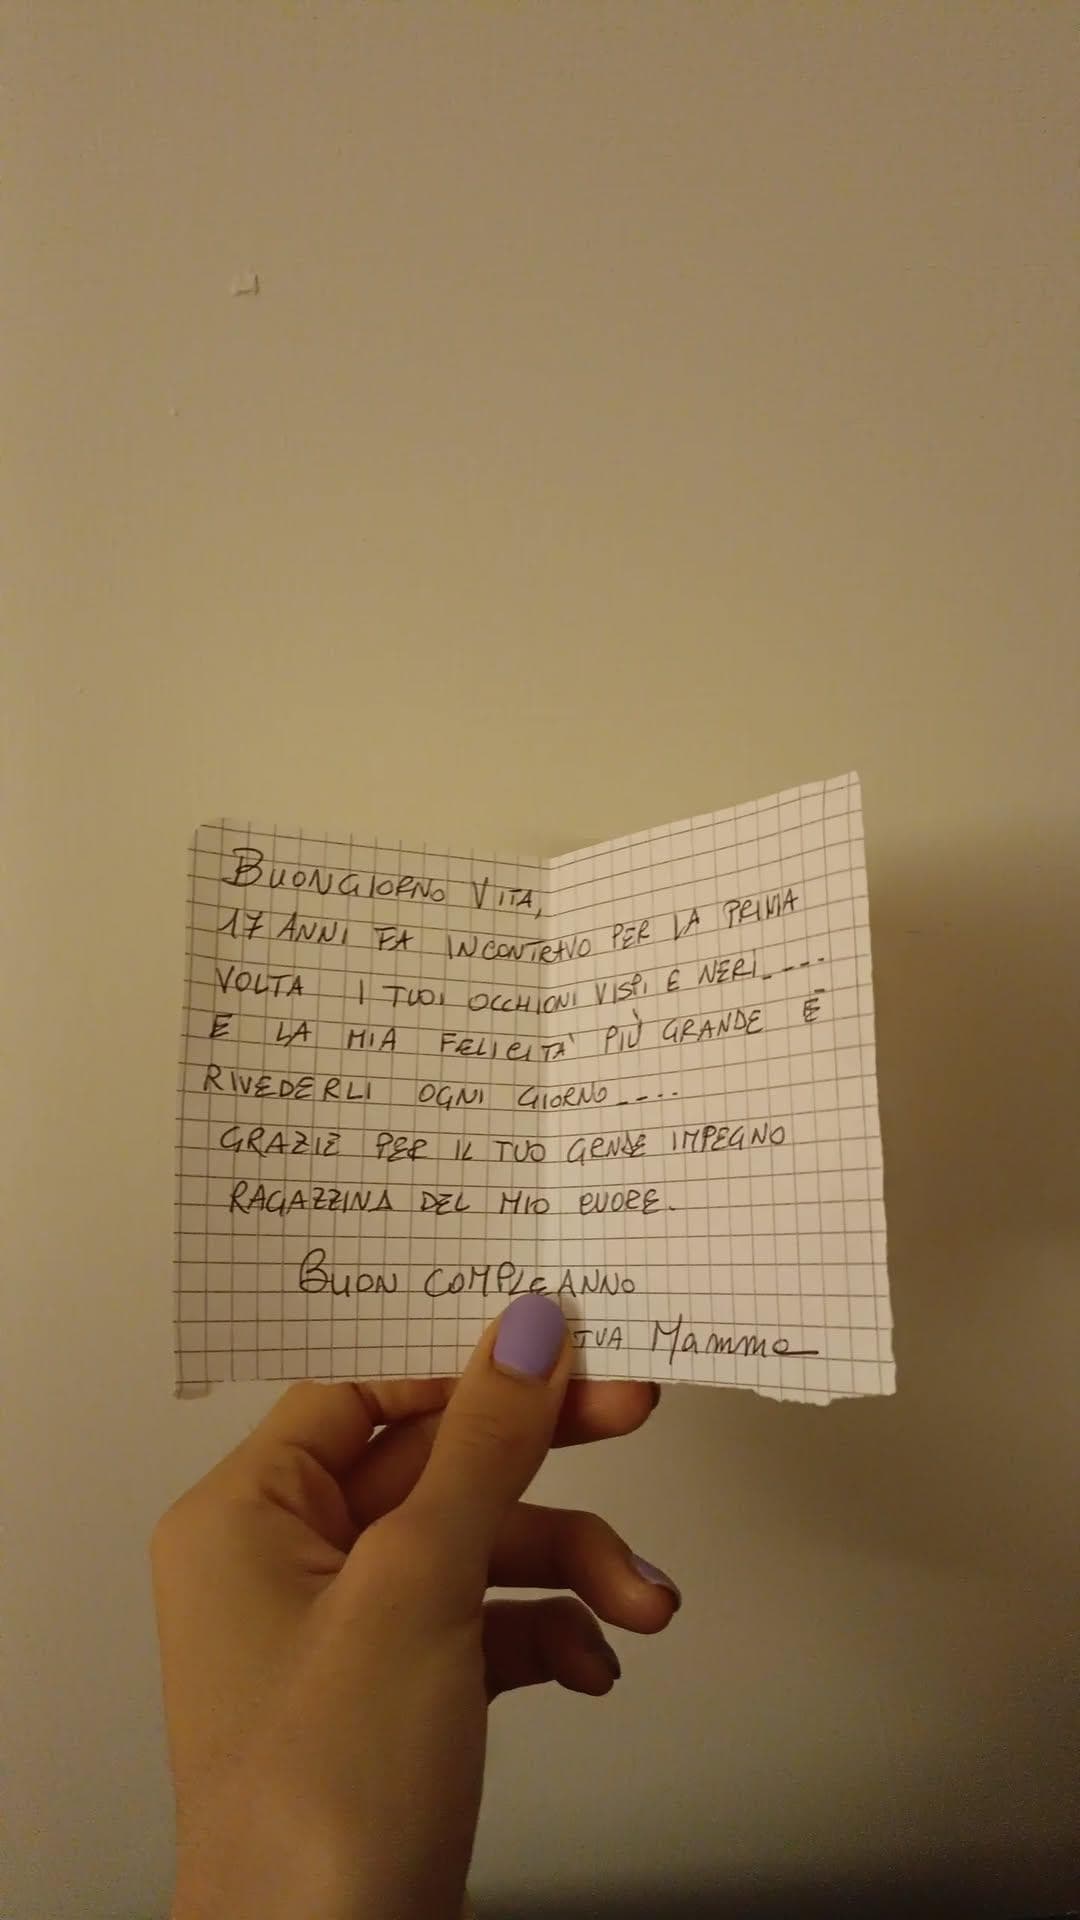 BUONGIORNO VITA,
17 ANNI FA INCONTRAVO PER LA PRIMA
VOLTA I TUOI OCCHIONI VISPI E NERI....
E LA MIA FELICITA' PIÙ GRANDE È
RIVEDERLI OGNI GIORNO....
GRAZIE PER IL TUO GRNDE IMPEGNO
RAGAZZINA DEL MIO CUORE.
BUON COMPLEANNO
TUA Mamma